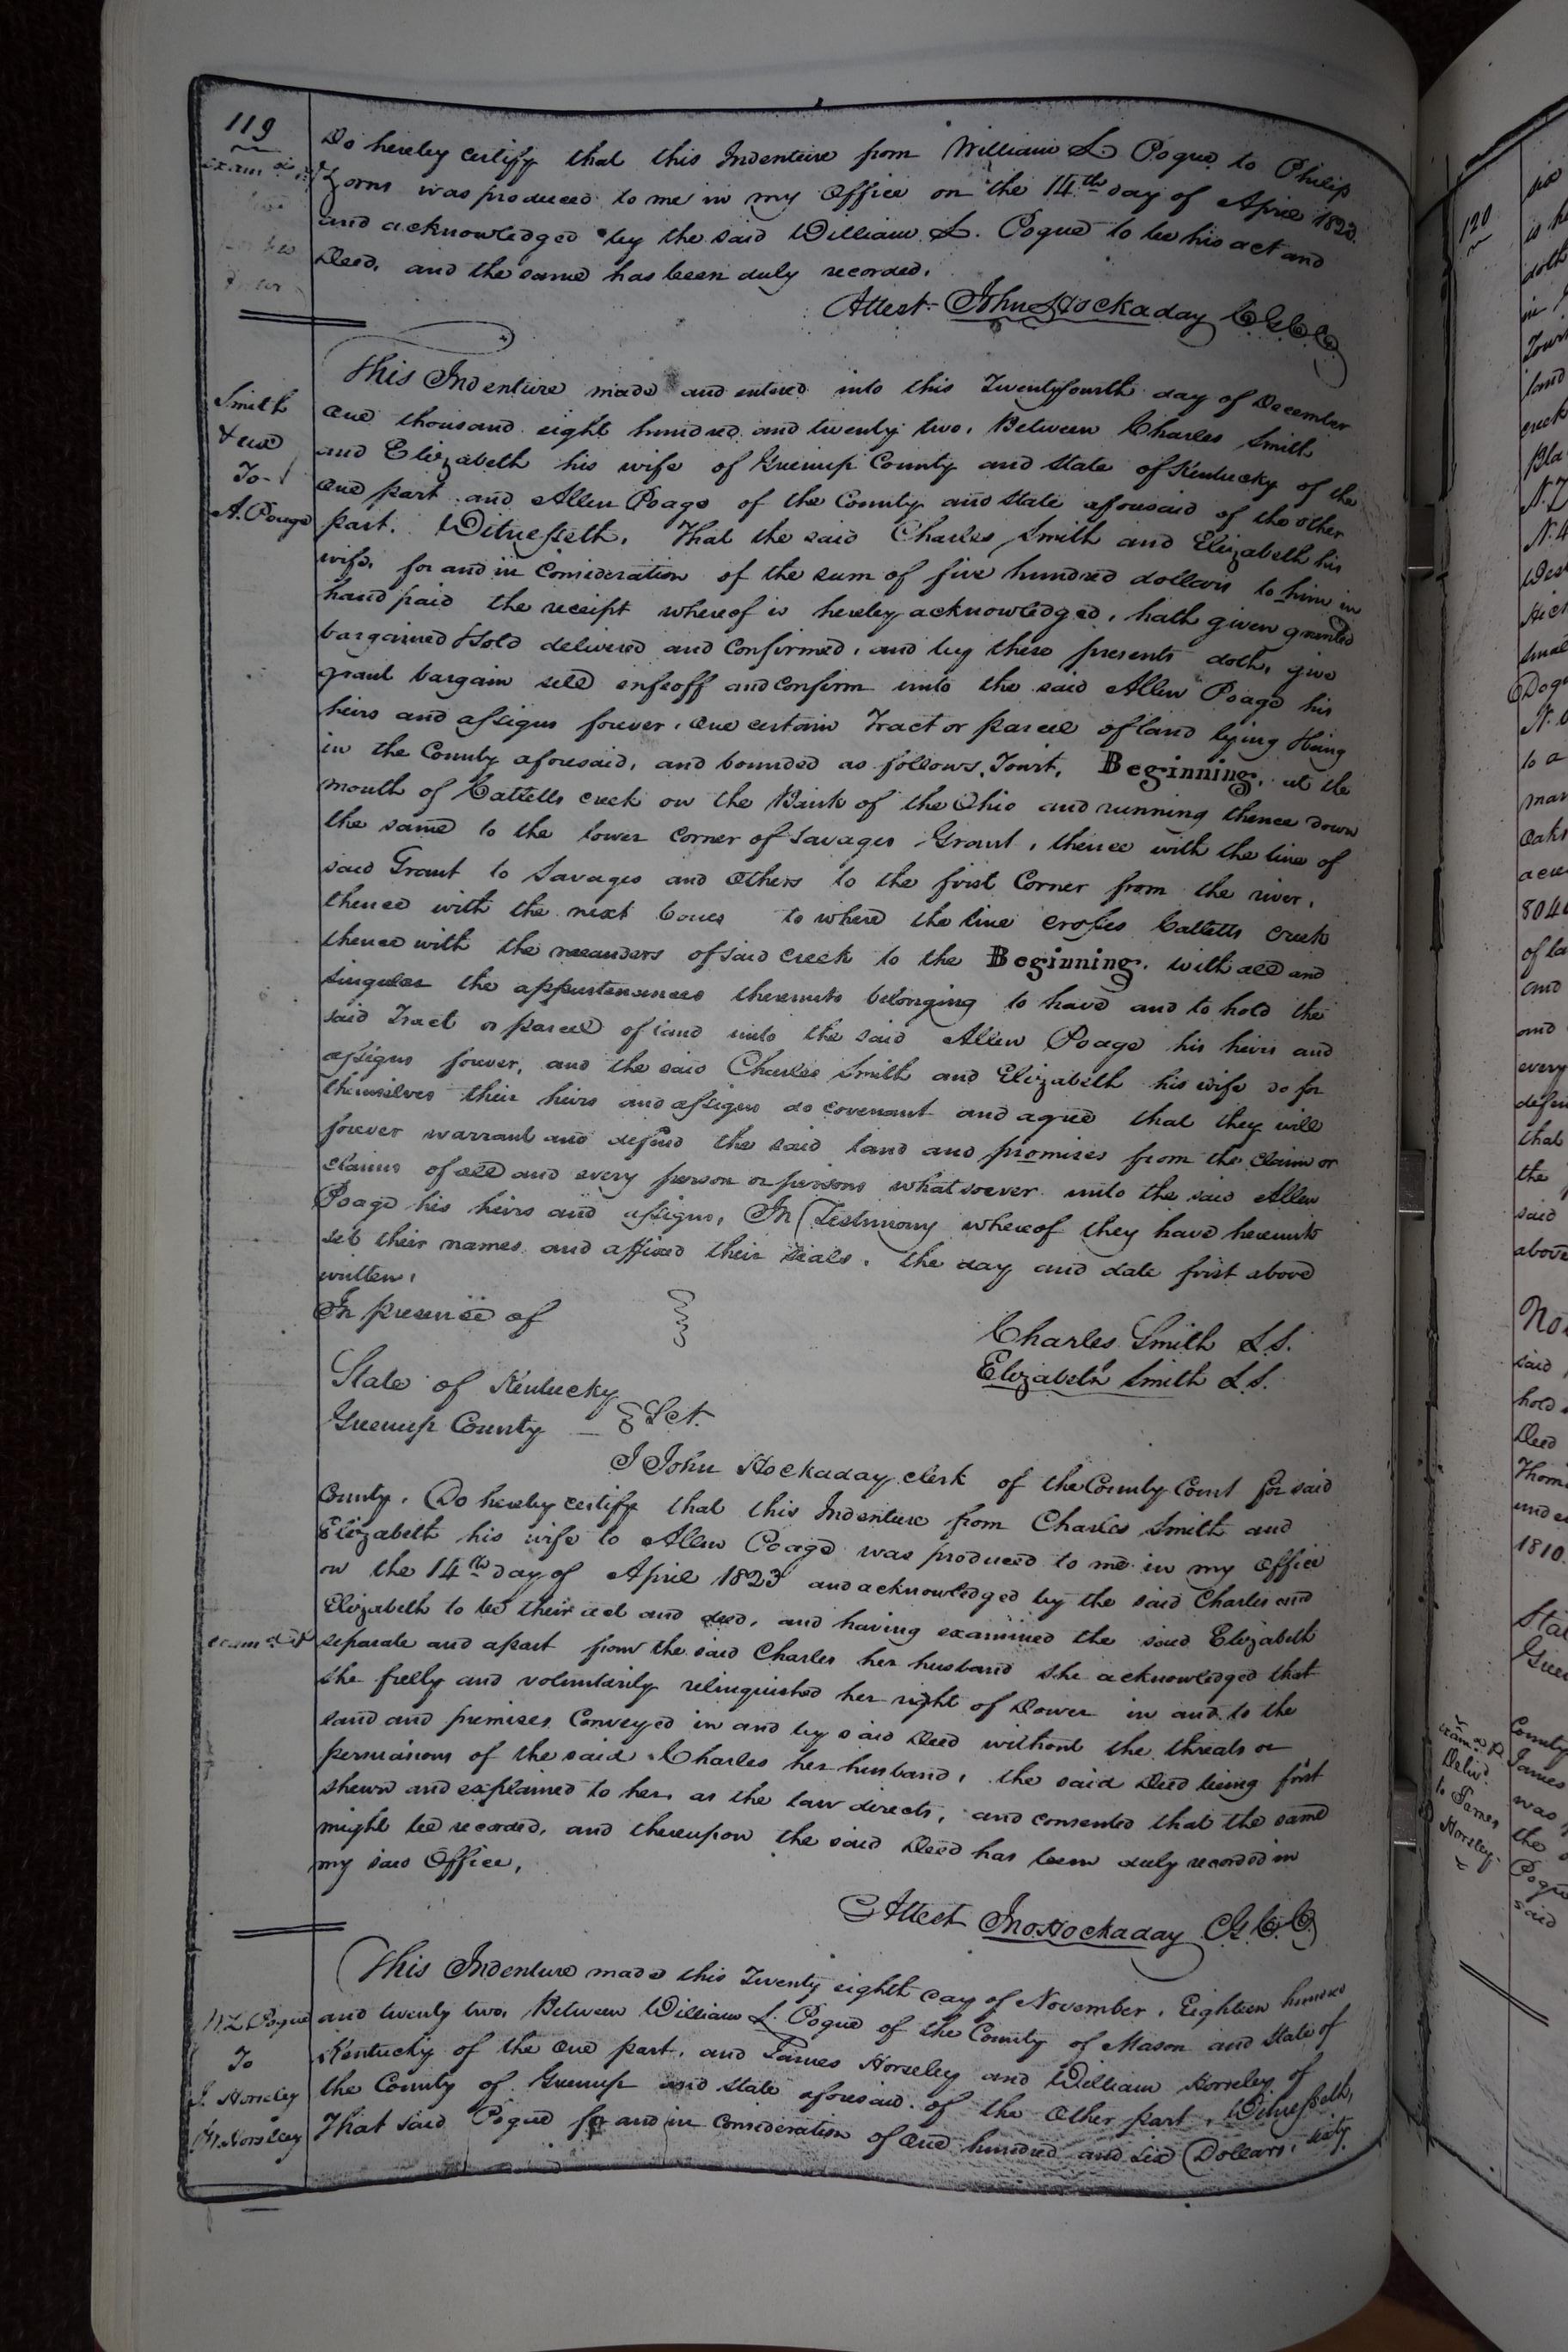 119
Do hereby certify that this Indenture from William L Pogue to Philip
Zorns was produced to me in my Office on the 14th day of April 1823
and acknowledged by the said William L. Pogue to be his act and
Deed, and the same has been duly recorded.
Attest John Hockaday C G C C
Smith
& ux
To
A. Poage
This Indenture made and entered into this Twentyfourth day of December
One thousand eight hundred and twenty two, Between Charles Smith
and Elizabeth his wife of Greenup County and State of Kentucky of the
one part and Allen Poage of the County and State aforesaid of the other
part. Witnesseth, That the said Charles Smith and Elizabeth his
wife, for and in Consideration of the sum of five hundred dollars to him in
hand paid the receipt whereof is hereby acknowledged, hath given granted
bargained & sold delivered and Confirmed, and by these presents doth, give
grant bargain sell enfeoff and confirm unto the said Allen Poage his
heirs and assigns forever, one certain Tract or parcel of land lying & being
in the County aforesaid, and bounded as follows, Towit, Beginning, at the
mouth of Cattetts creek on the Bank of the Ohio and running thence down
the same to the lower corner of Savages Grant, thence with the line of
said Grant to Savages and Others to the first Corner from the river,
thence with the next Coues to where the line crosses Cattetts creek
thence with the meanders of said creek to the Beginning. With all and
singular the appurtenances thereunto belonging to have and to hold the
said Tract or parcel of land unto the said Allen Poage his heirs and
assigns forever, and the said Charles Smith and Elizabeth his wife do for
themselves their heirs and assigns do covenant and agree that they will
forever warrant and defend the said land and promises from the claim or
claims of all and every person or persons whatsoever unto the said Allen
Poage his heirs and assigns, In Testimony whereof they have hereunto
set their names and affixed their seals, the day and date first above
written.
In presence of
Charles Smith L.S.
Elizabeth Smith L.S.
State of Kentucky
Greenup County Sct.
I John Hockaday clerk of the County Court for said
County, Do hereby certify that this Indenture from Charles Smith and
Elizabeth his wife to Allen Poage was produced to me in my Office
on the 14th day of April 1823 and acknowledged by the said Charles and
Elizabeth to be their act and deed, and having examined the said Elizabeth
separate and apart from the said Charles her husband she acknowledged that
she freely and voluntarily relinquished her right of Dower in and to the
land and premises Conveyed in and by said Deed without the threats or
persuasions of the said Charles her husband, the said Deed being first
shewn and explained to her, as the law directs, and consented that the same
might be recorded, and thereupon the said Deed has been duly recorded in
my said Office,
Attest Jno Hockaday C G C C
W.L. Pogue
To
J. Horseley
W. Horsley
This Indenture made this Twenty eighth day of November, Eighteen hundred
and twenty two, Between William L. Pogue of the County of Mason and State of
Kentucky of the one part, and James Horseley and William Horseley of
the County of Greenup and State aforesaid of the Other part, Witnesseth,
That said Pogue for and in Consideration of One hundred and six Dollars, sixty
120
is
doth
in
land
creek
N. 4
West
to a
Oaks
804
of la
and
and
every
that
the
said
above
said
hold
Deed
1810
County
James
was
the
Pogue
said
exam'd
Deliv'd
to James
Horsley